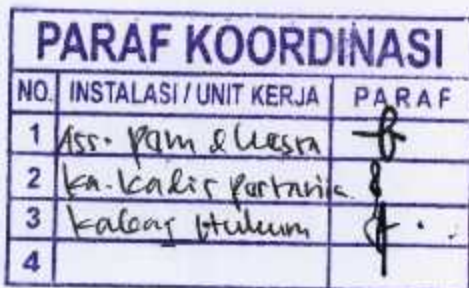 PARAF KOORDINASI
NO. INSTALASI / UNIT KERJA PARAF
1 Ass. Pem & Kesra
2 Ka.
3 Kabag Hukum
4